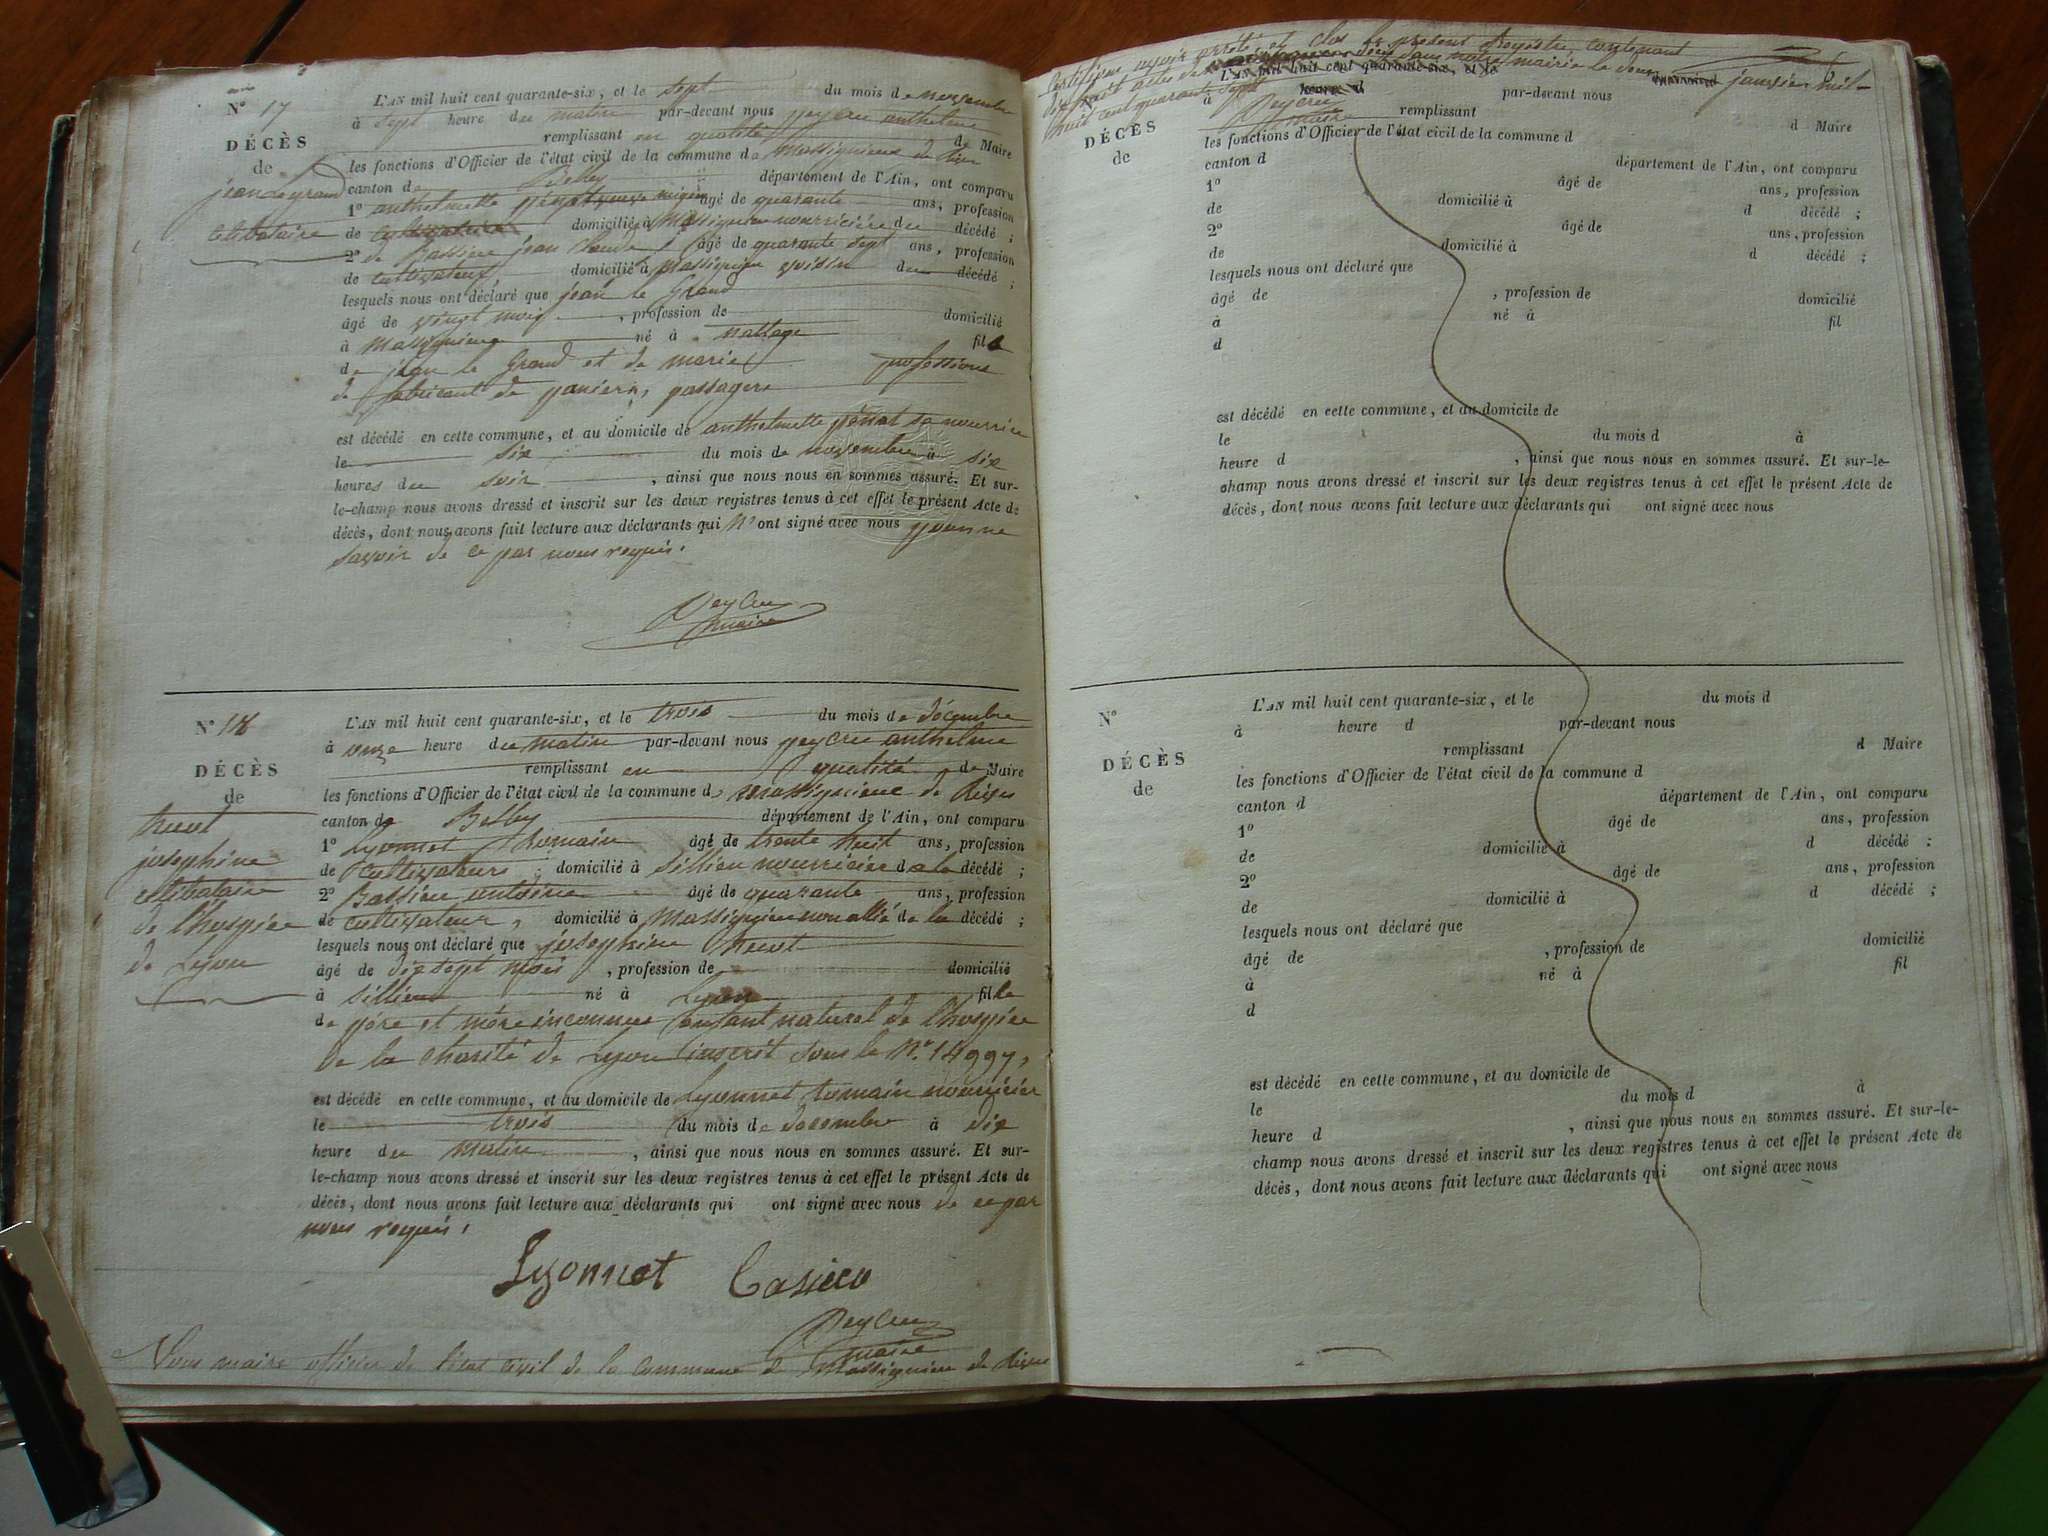 N° 17
DÉCÈS
de
jean Le grand
célibataire
L'AN mil huit cent quarante-six, et le sept du mois de novembre
à sept heure du matin par-devant nous peycru anthelme
remplissant en qualité de Maire
les fonctions d'Officier de l'état civil de la commune de Massignieu de Rives
canton de Belley département de l'Ain, ont comparu
1° anthelmette âgé de quarante ans, profession
de domicilié à Massignieu nourricière du décédé ;
2° jean Claude âgé de quarante sept ans, profession
de cultivateur domicilié à Massignieu voisin du décédé ;
lesquels nous ont déclaré que jean le Grand
âgé de vingt mois, profession de domicilié
à Massignieu né à nattage fils
de jean le Grand et de marie professions
de fabricant de paniers, passagers
est décédé en cette commune, et au domicile de anthelmette sa nourrice
le six du mois de novembre à six
heures du soir, ainsi que nous nous en sommes assuré. Et sur-
le-champ nous avons dressé et inscrit sur les deux registres tenus à cet effet le présent Acte de
décès, dont nous avons fait lecture aux déclarants qui n'ont signé avec nous pour ne
savoir de ce par nous requis.
Peycru
maire
N° 18
DÉCÈS
de
josephine
célibataire
de l'hospice
de Lyon
L'AN mil huit cent quarante-six, et le trois du mois de décembre
à onze heure du matin par-devant nous peycru anthelme
remplissant en qualité de Maire
les fonctions d'Officier de l'état civil de la commune de Massignieu de Rives
canton de Belley département de l'Ain, ont comparu
1° Lyonnet Romain âgé de trente huit ans, profession
de Cultivateur, domicilié à Sillieu nourricier de la décédé ;
2° antoine âgé de quarante ans, profession
de cultivateur, domicilié à Massignieu non allié de la décédé ;
lesquels nous ont déclaré que josephine
âgé de dix sept mois, profession de domicilié
à Sillieu né à Lyon fille
de père et mère inconnue enfant naturel de l'hospice
de la charité de Lyon inscrit sous le N° 14997,
est décédé en cette commune, et au domicile de Lyonnet romain nourricier
le trois du mois de décembre à dix
heure du matin, ainsi que nous nous en sommes assuré. Et sur-
le-champ nous avons dressé et inscrit sur les deux registres tenus à cet effet le présent Acte de
décès, dont nous avons fait lecture aux déclarants qui ont signé avec nous de ce par
nous requis.
Lyonnet
Peycru
maire
Nous maire officier de l'état civil de la commune de Massignieu de Rives
Certifions avoir arrêté et clos le présent Registre, contenant
dix huit actes de décès dans notre mairie le janvier mil
huit cent quarante sept
Peycru
maire
L'AN mil huit cent quarante-six, et le
à heure d par-devant nous
remplissant d Maire
DÉCÈS
de
les fonctions d'Officier de l'état civil de la commune d
canton d département de l'Ain, ont comparu
1° âgé de ans, profession
de domicilié à d décédé ;
2° âgé de ans, profession
de domicilié à d décédé ;
lesquels nous ont déclaré que
âgé de , profession de domicilié
à né à fil
d
est décédé en cette commune, et au domicile de
le du mois d à
heure d , ainsi que nous nous en sommes assuré. Et sur-le-
champ nous avons dressé et inscrit sur les deux registres tenus à cet effet le présent Acte de
décès, dont nous avons fait lecture aux déclarants qui ont signé avec nous
N°
DÉCÈS
de
L'AN mil huit cent quarante-six, et le du mois d
à heure d par-devant nous
remplissant d Maire
les fonctions d'Officier de l'état civil de la commune d
canton d département de l'Ain, ont comparu
1° âgé de ans, profession
de domicilié à d décédé ;
2° âgé de ans, profession
de domicilié à d décédé ;
lesquels nous ont déclaré que
âgé de , profession de domicilié
à né à fil
d
est décédé en cette commune, et au domicile de
le du mois d à
heure d , ainsi que nous nous en sommes assuré. Et sur-le-
champ nous avons dressé et inscrit sur les deux registres tenus à cet effet le présent Acte de
décès, dont nous avons fait lecture aux déclarants qui ont signé avec nous